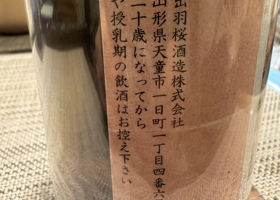 出羽桜酒造株式会社
山形県天童市一日町一丁目四番六
二十歳になってから
や授乳期の飲酒はお控え下さい